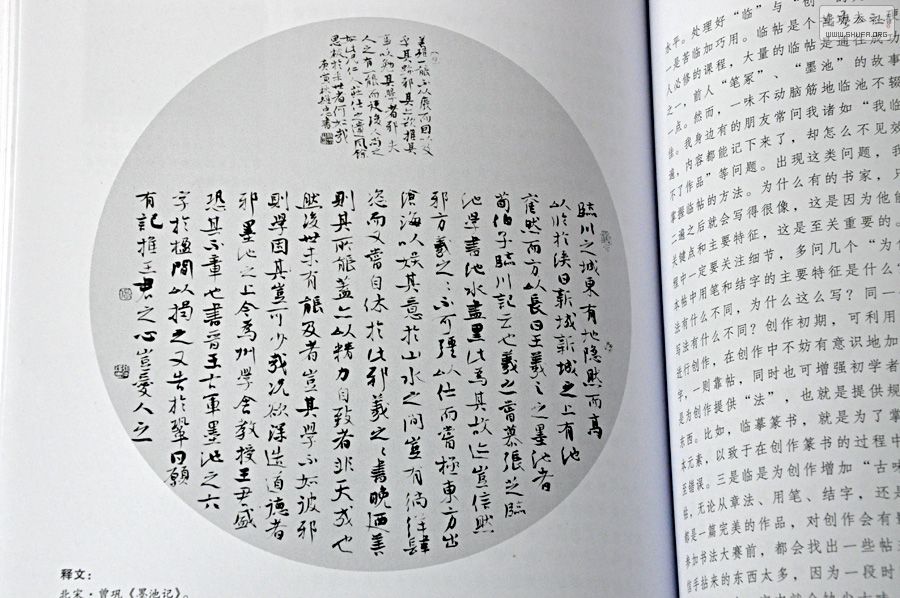 臨川之城東有地隐然而高
以临於溪曰新城新城之上有池
窪然而方以長曰王羲之之墨池者
荀伯子臨川記云也羲之嘗慕張芝臨
池學書池水盡黑此為其故迹豈信然
邪方羲之之不可彊以仕而嘗極東方出
滄海以娱其意於山水之間豈有徜徉肆
恣而又嘗自休於此邪羲之之書晚迺善
則其所能盖亦以精力自致者非天成也
然後世未有能及者豈其學不如彼邪
則學固其豈可少哉况欲深造道德者
邪墨池之上今為州學舍教授王君盛
恐其不章也書晋王右軍墨池之六
字於楹間以揭之又告於鞏曰願
有記推王君之心豈愛人之
善雖一能不以廢而因以及
乎其跡邪其亦欲推其
事以勉其學者邪夫
人之有能而使後人尚之
如此况仁人莊士之遺風餘
思被於来世者何如哉
庚寅秋
释文：
北宋·曾巩《墨池记》。
水平。处理好“临”与“创”
一是苦临加巧用。临帖是个
人必修的课程，大量的临帖是通往成功
之一，前人“笔冢”、“墨池”的故事
一点。然而，一味不动脑筋地临池不辍
佳。我身边有的朋友常问我诸如“我临
遍，内容都能记下来了，却怎么不见效
不了作品”等问题。出现这类问题，我
掌握临帖的方法。为什么有的书家，只
二遍之后就会写得很像，这是因为他
关键点和主要特征，这是至关重要的。
程中一定要关注细节，多问几个“为什
本帖中用笔和结字的主要特征是什么
法有什么不同，为什么这么写？同一
写法有什么不同？创作初期，可利用
进行创作，在创作中不妨有意识地加
字，一则靠帖，同时也可增强初学者
是为创作提供“法”，也就是提供规
东西。比如，临摹篆书，就是为了掌
本元素，以致于在创作篆书的过程中
至错误。三是临是为创作增加“古味
帖，无论从章法、用笔、结字，还是
都是一篇完美的作品，对创作会有
参加书法大赛前，都会找出一些帖
信手拈来的东西太多，因为一段时
WWW.SHUFA.ORG